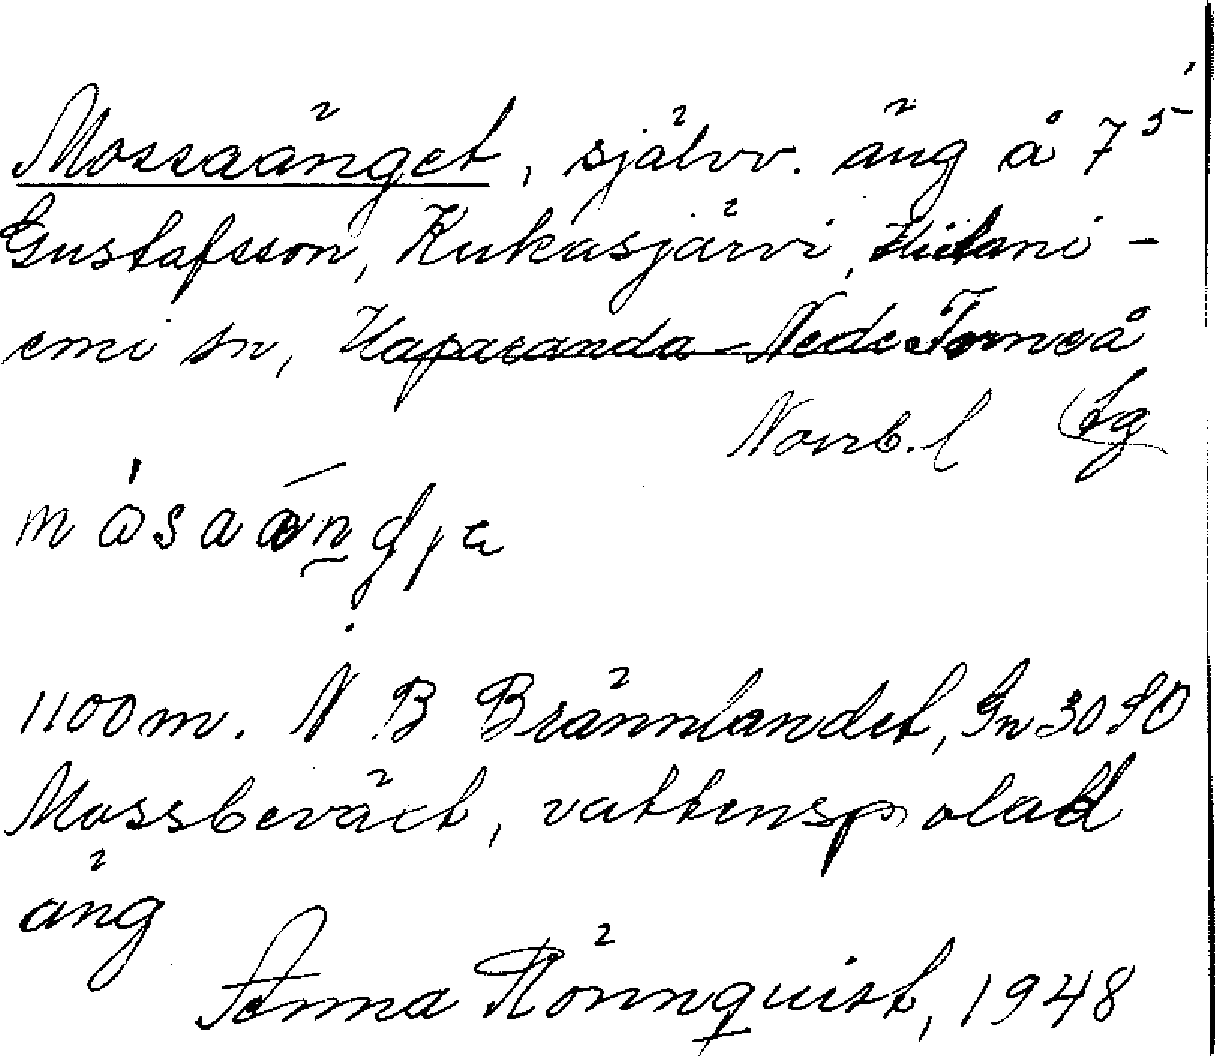 Mossaänget, självv. äng å 7⁵
Gustafsson, Kukasjärvi, Hietani-
emi sn, Haparanda - Neder Torneå
Norrb. l
1100 m. N B Brännlandet, Gn 3080
Mossbeväxt, vattenspolad
äng
Anna Rönnquist, 1948